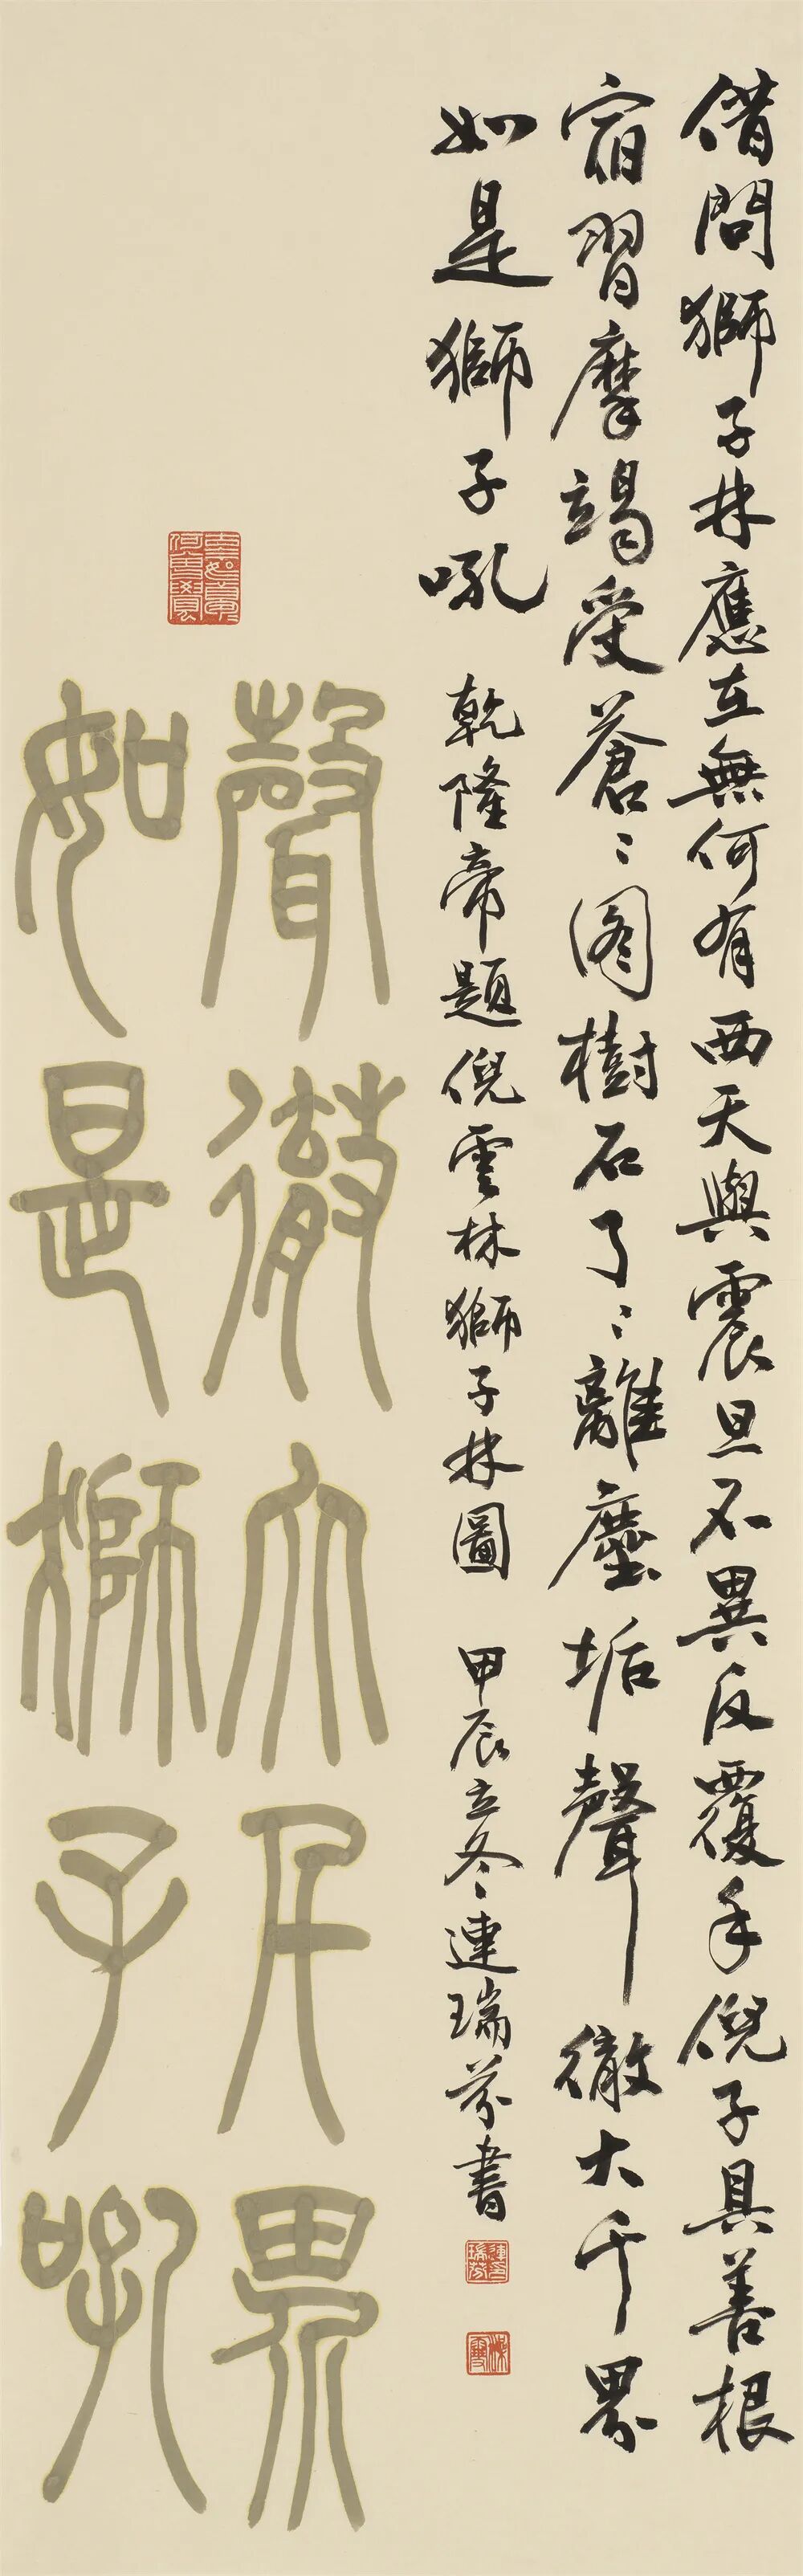 借問獅子林應在無何有西天與震旦不異反覆手倪子具善根
宿習摩竭受蒼〻图樹石了〻離塵垢聲徹大千界
如是獅子吼 乾隆帝題倪雲林獅子林圖 甲辰立冬連瑞芬書
聲徹大千界
如是獅子吼